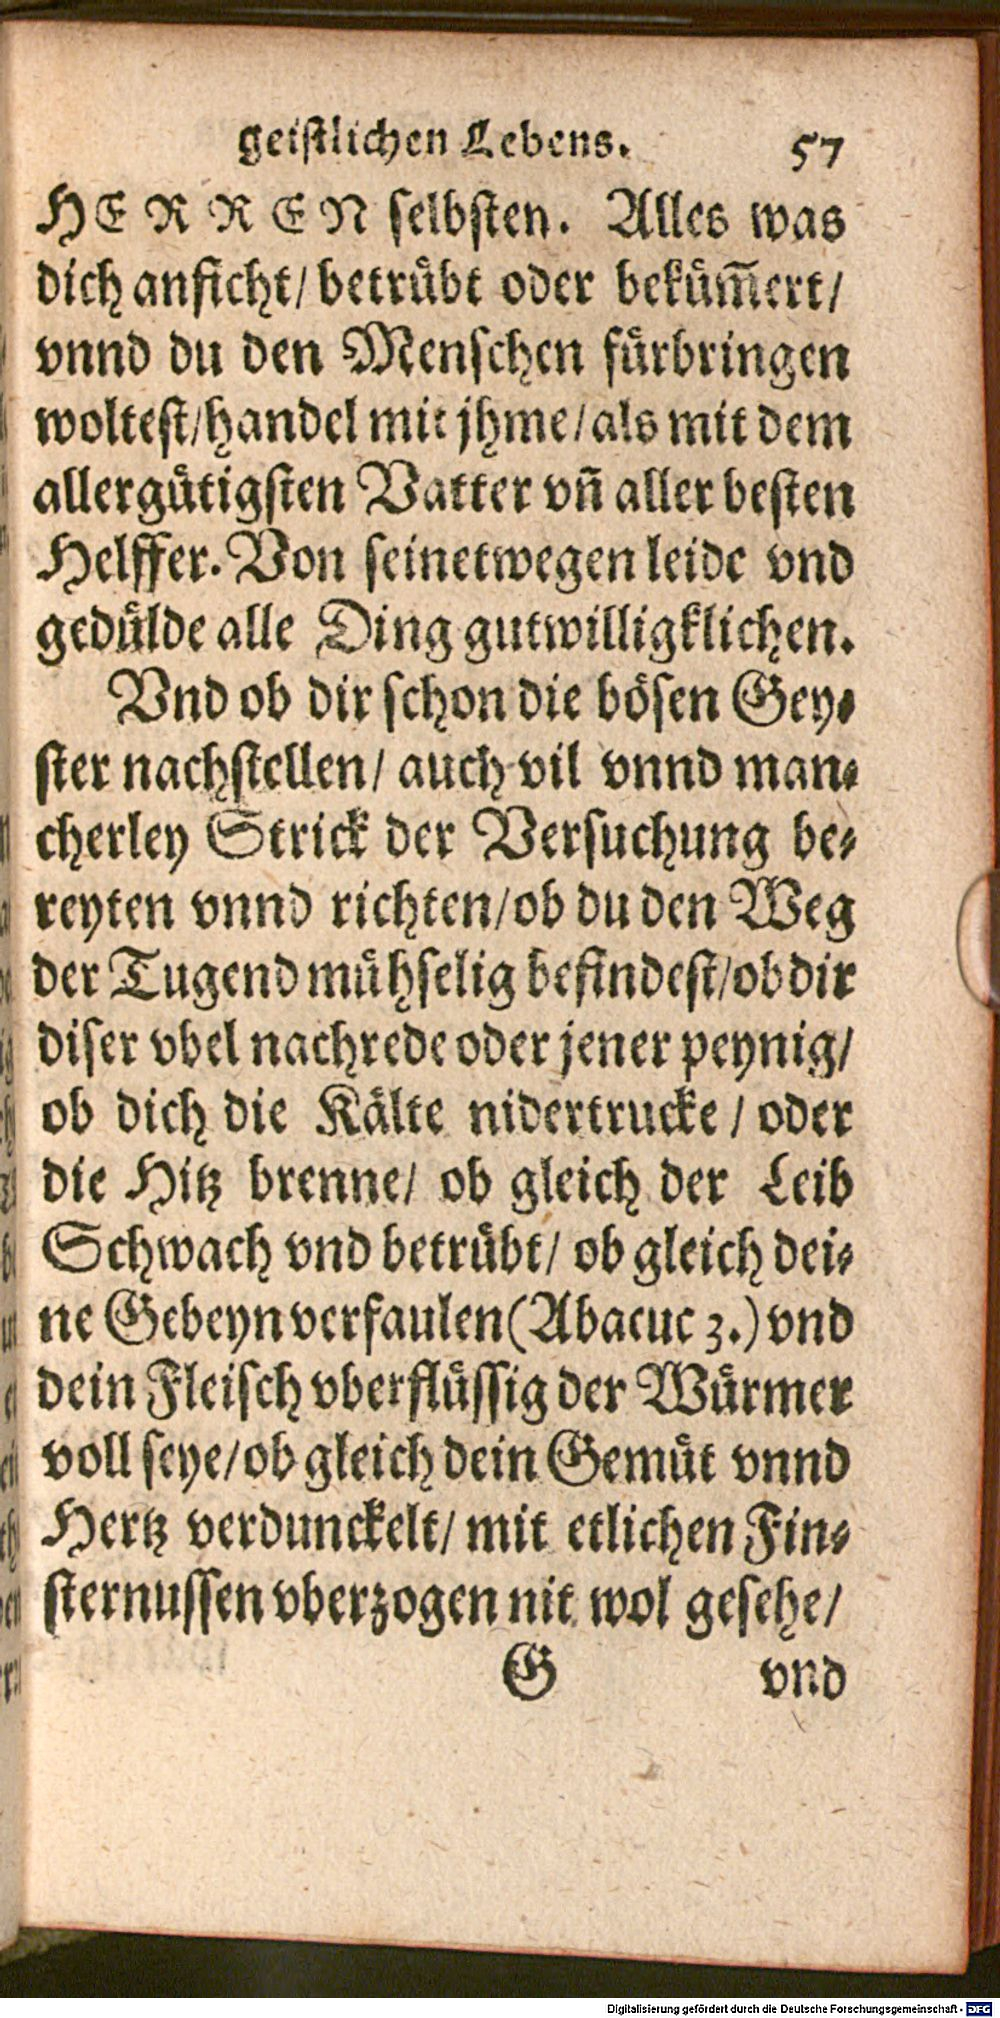 geistlichen Lebens. 57
HERREN selbsten. Alles was
dich anficht/ betrübt oder beküm̃ert/
vnnd du den Menschen fürbringen
woltest/handel mit jhme/als mit dem
allergütigsten Vatter vñ aller besten
Helffer. Von seinetwegen leide vnd
gedülde alle Ding gutwilligklichen.
Vnd ob dir schon die bösen Gey-
ster nachstellen/ auch vil vnnd man-
cherley Strick der Versuchung be-
reyten vnnd richten/ob du den Weg
der Tugend mühselig befindest/ob dir
diser vbel nachrede oder jener peynig/
ob dich die Kälte nidertrucke / oder
die Hitz brenne/ ob gleich der Leib
Schwach vnd betrübt/ ob gleich dei-
ne Gebeyn verfaulen (Abacuc 3.) vnd
dein Fleisch vberflüssig der Würmer
voll seye/ob gleich dein Gemüt vnnd
Hertz verdunckelt/ mit etlichen Fin-
sternussen vberzogen nit wol gesehe/
G vnd
Digitalisierung gefördert durch die Deutsche Forschungsgemeinschaft - DFG